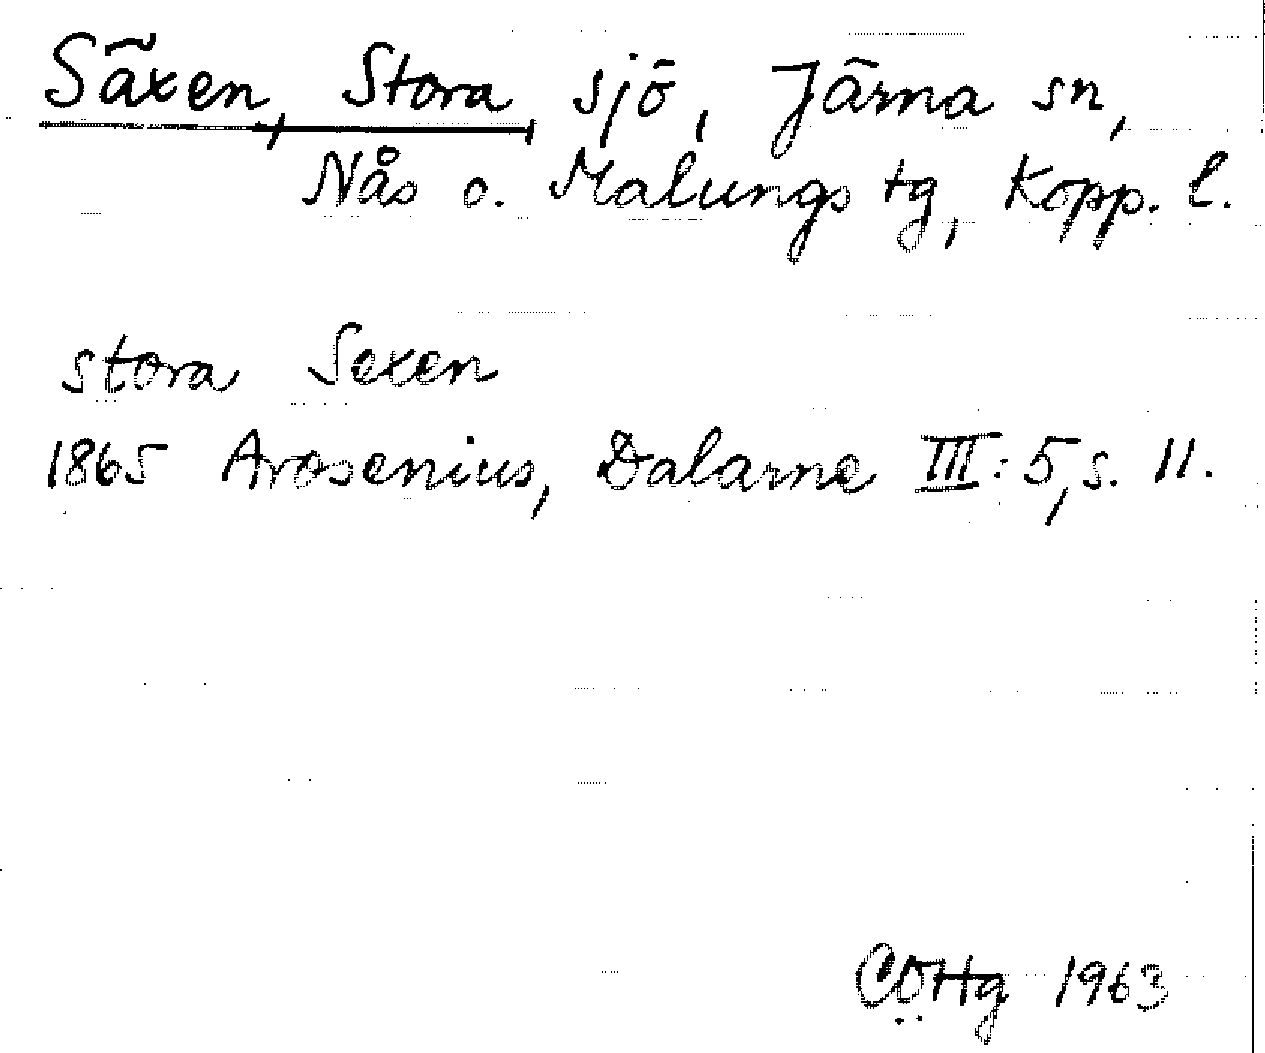 Säxen, Stora sjö, Järna sn,
Nås o. Malungs tg, Kopp. l.
stora Sexen
1865 Arosenius, Dalarne III: 5, s. 11.
1963